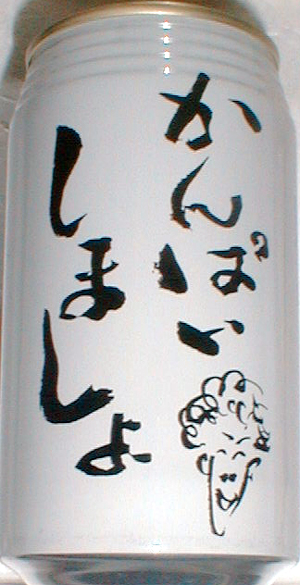 かんぱい
しましょ